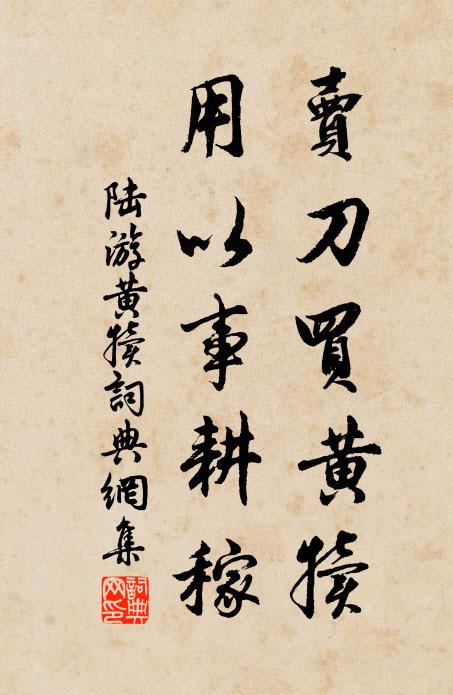 賣刀買黄犢
用以事耕稼
陆游黄犢詞典網集
詞典网印